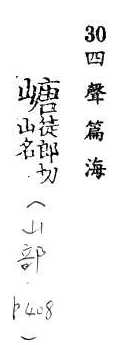 30四聲篇海
嵣徒郎切山名
(山部
p408)